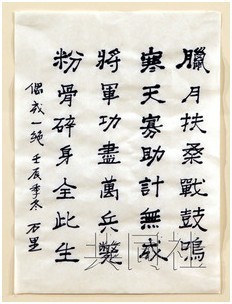 臘月扶桑戰鼓鳴
寒天寡助計無成
將軍功盡萬兵斃
粉骨碎身全此生
偶成一絶 壬辰季冬 石黑
共同社